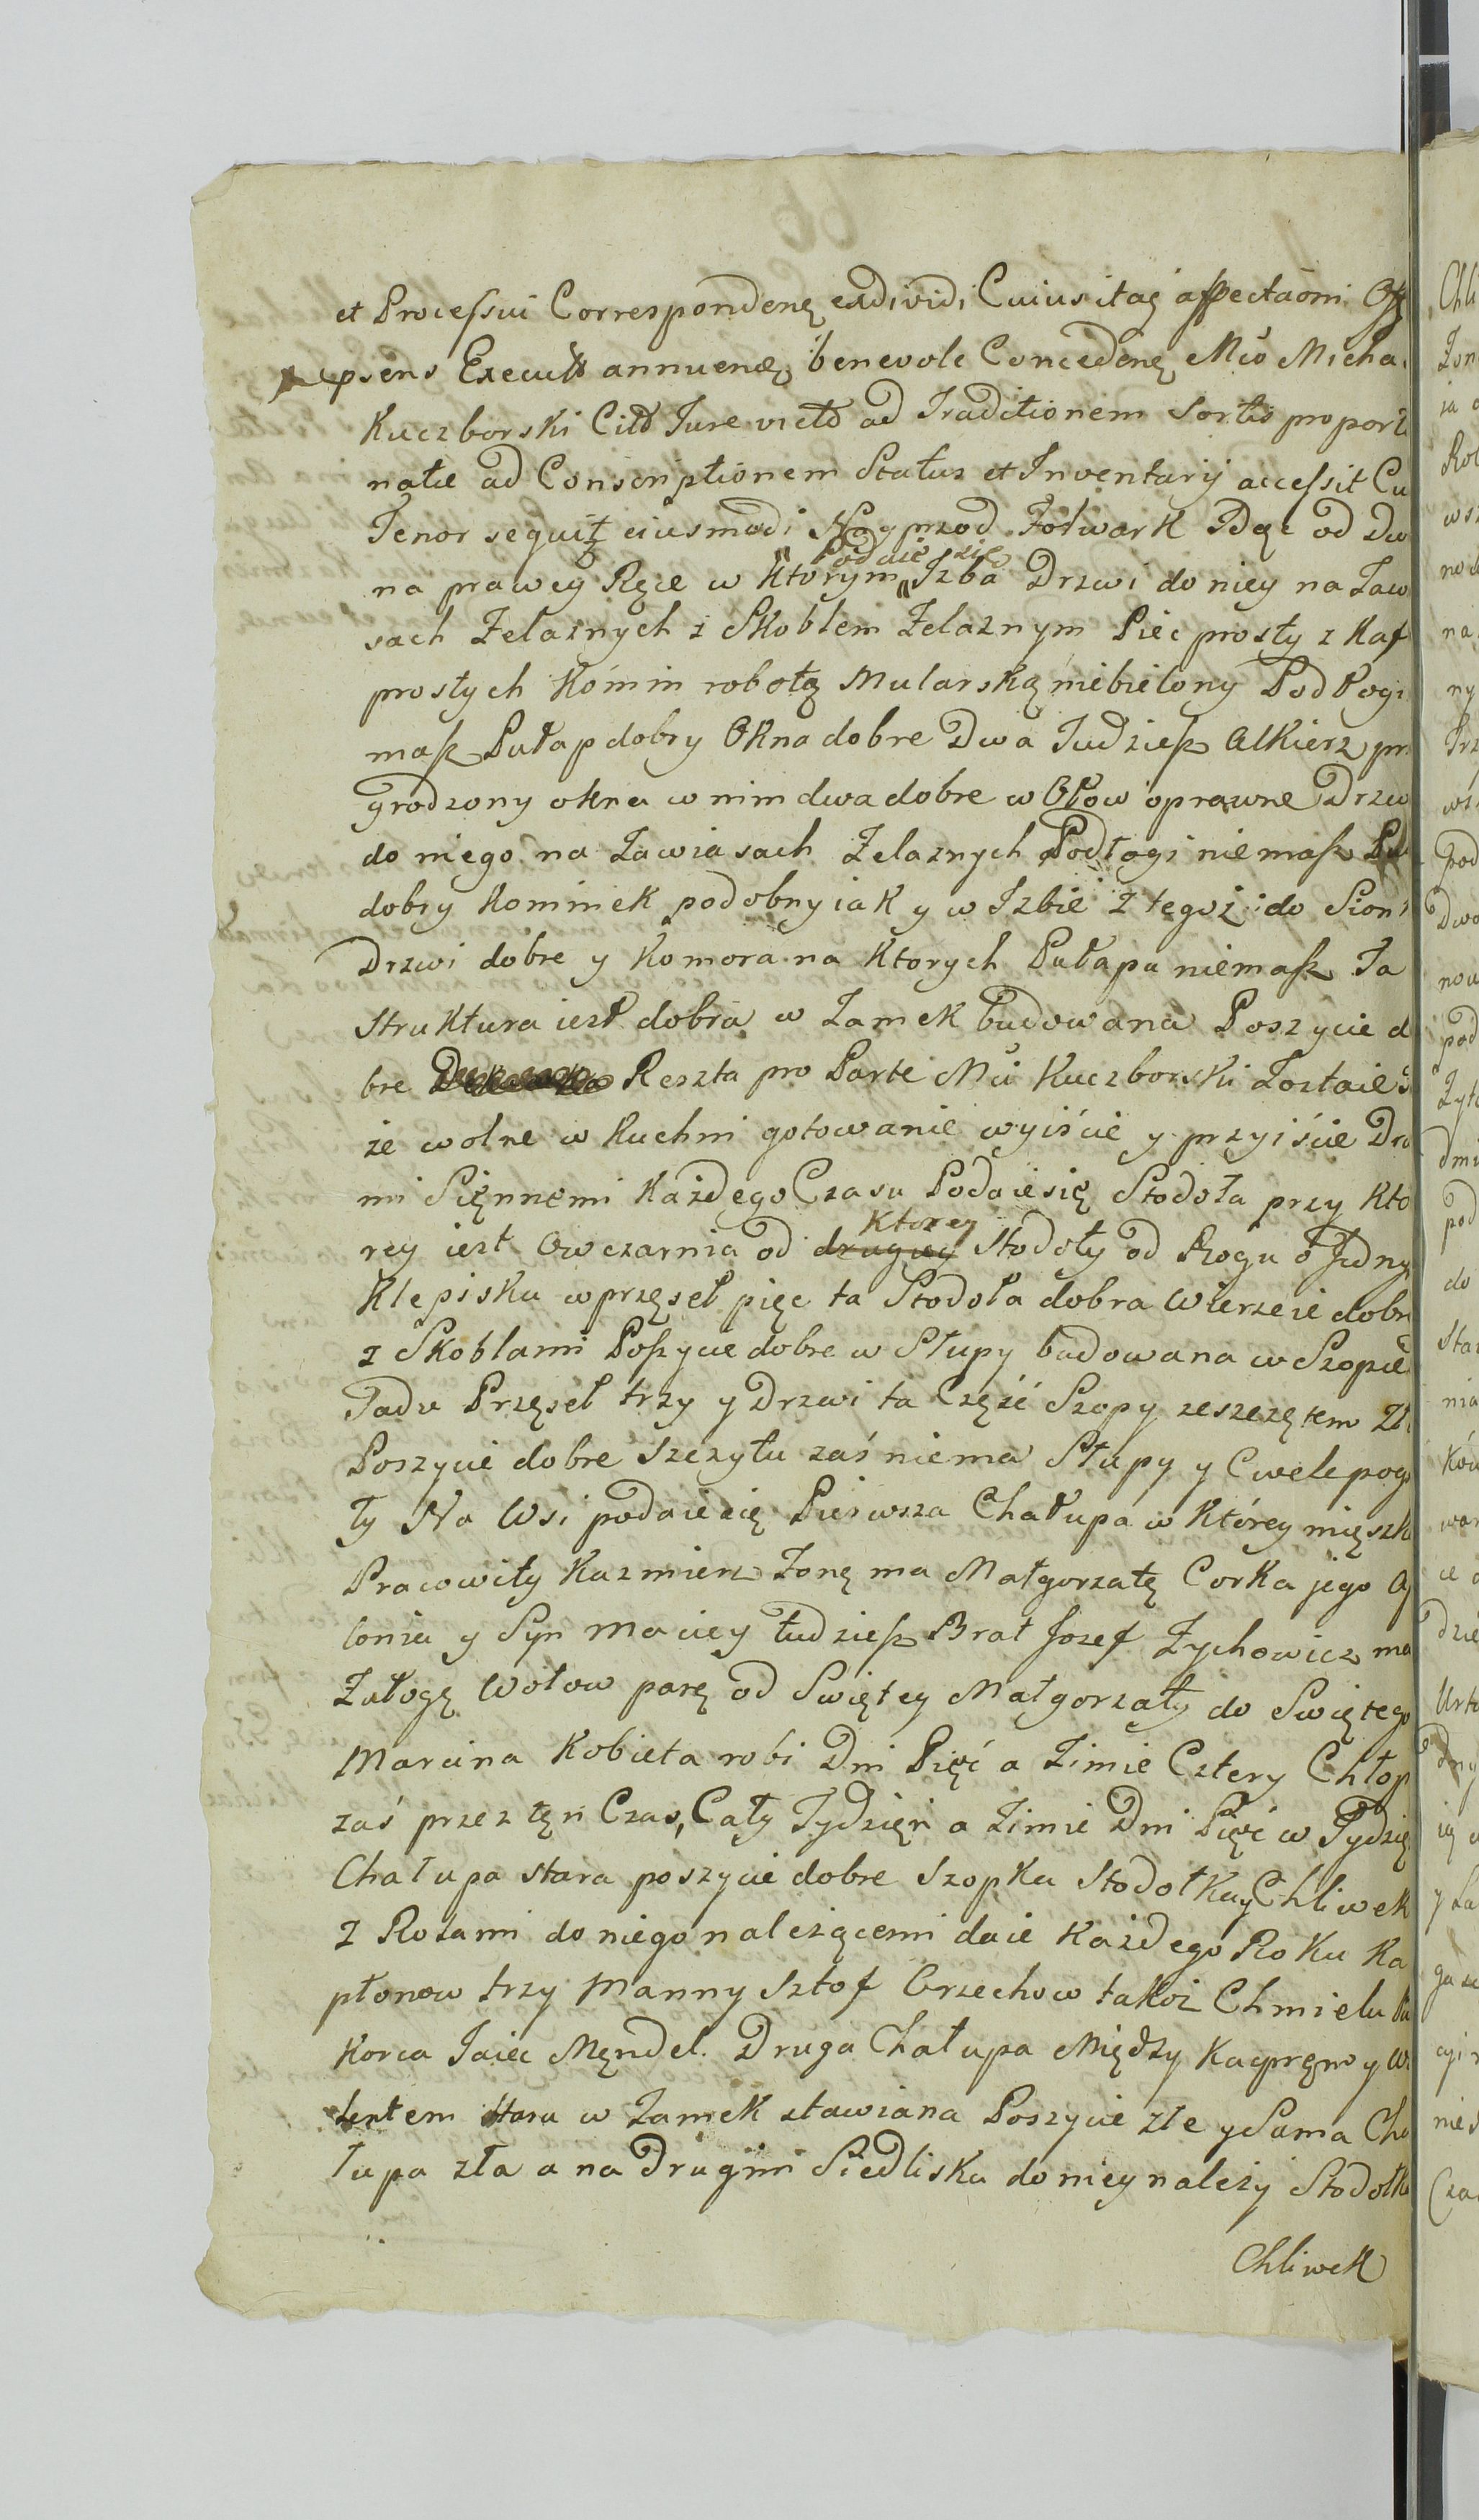 et Processui Correspondenę exdividi Cuius itaq affectaoni Off
psens Executt annuenę, benevole Concedenę Mło Micha
Kuczborski Citt Iure victt ad Traditionem Sortis proport
natæ ad Conscriptionem Status et Inventarij accessit Cu
Tenor sequitz eiusmodi Nayprzod Folwark Idąc od Dw
na prawey Ręce w Ktorym Podaie się Izba Drzwi do niey na Zaw
sach Zelaznych z Skoblem Zelaznym Piec prosty z Kaf
prostych Kómin robotą Mularską niebielony Podłogi
masz Pułap dobry Okna dobre Dwa Tudziesz Alkierz prz
grodzony okna w nim dwa dobre w Ołow oprawne Drzw
do niego na Zawiasach Zelaznych Podłogi niemasz Pu
dobry Kominek podobny iak y w Izbie z tegoż do Sion
Drzwi dobre y Komora na Ktorych Pułapu niemasz Ta
Struktura iest dobra w Zamek budowana Poszycie d
bre Reszta pro Parte Mci Kuczborski Zostaie
że wolne w Kuchni gotowanie wyiście y przyiście Drz
mi Sięnnemi Każdego Czasu Podaie się Stodoła przy Kto
rey iest Owczarnia od drugiey Ktorey Stodoły od Rogu o Jedny
Klepisku w przęseł pięc ta Stodoła dobra Wierzeie dobr
z Skoblami Poszycie dobre w Słupy budowana w Szopie
Tadu Przęseł trzy y Drzwi ta Część Szopy zeszczętem Zł
Poszycie dobre Szczytu zaś niema Słupy y Cwele pog
ły Na Wsi podaie się Pierwsza Chałupa w Którey mięszk
Pracowity Kazmierz Zonę ma Małgorzatę Corka jego A
lonia y Syn Maciey tudziesz Brat Jozef Zychowicz ma
Załogę Wołow parę od Swiętey Małgorzaty do Swiętego
Marcina Kobieta robi Dni Pięć a Zimie Cztery Chłop
zaś przez tęn Czas, Cały Tydzięń a Zimie Dni Pięć w Tydzię
Chałupa stara poszycie dobre Szopka Stodołka y Chliwek
Z Rolami do niego należącemi daie Każdego Roku Ka
płonow trzy Manny Sztof Orzechow takoż Chmielu
Korca Iaiec Męndel. Druga Chałupa Między Kacprem y W
lentem Stara w Zamek stawiana Poszycie złe y Sama Cha
łupa zła a na Drugim Siedlisku do niey należy Stodołk
Chliwek